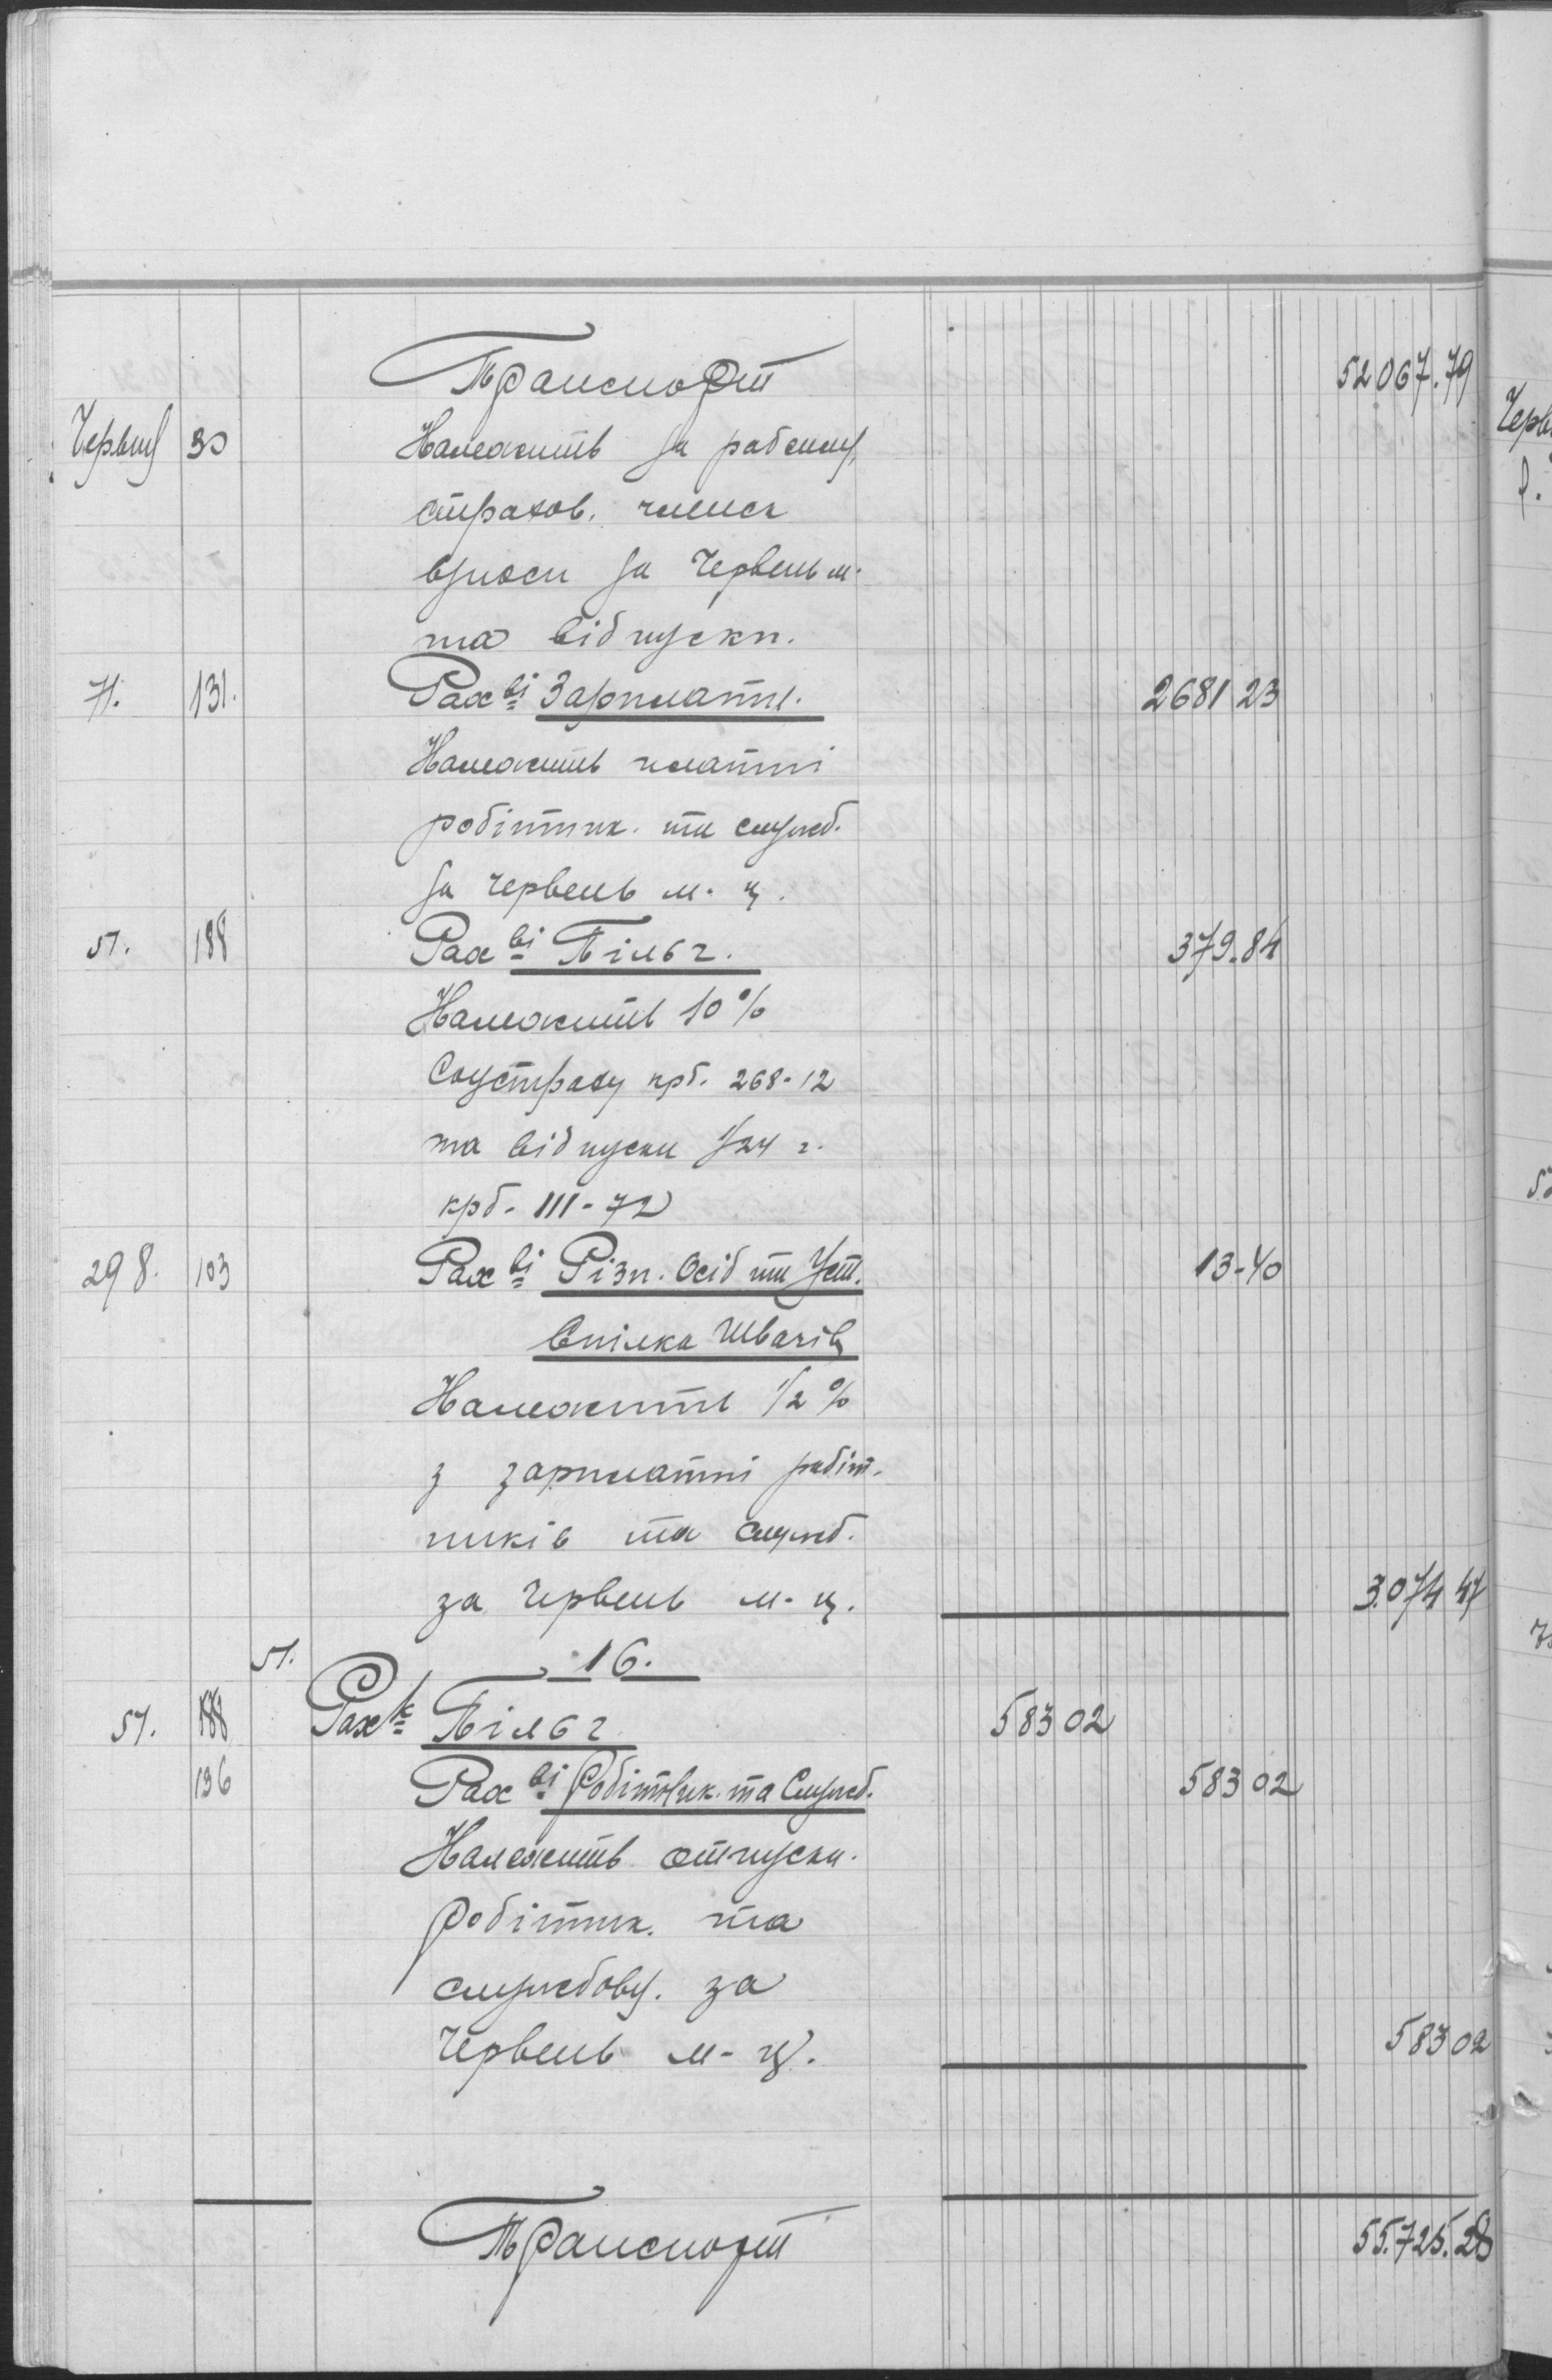 Транспорт 52067.79
Червня 30 Належить за рабсилу,
страхов. членск
взноси за Червень м.
та відпускн.
71. 131. Рах-ві Зарплатн. 2681 23
Належить платні
робітник. та служб.
за червень м-ц.
51. 188 Рах-ві Пільг. 379-84
Належить 10%
Соцстраху крб. 268-12
та відпуски 1/24 г.
крб. 111-72
298. 103 Рах-ві Різн. Осіб та Уст. 13-40
Спілка Швачів
Належить 1/2 %
з зарплатні робіт-
ників та служб.
за Червень м-ц. 3.074 47
51. 16.
51. 188 Рах-к Пільг 583 02
196 Рах-ві Робітник. та Служб. 583 02
Належить отпускн.
Робітник. та
службовц. за
Червень м-ц. 583 02
Транспорт 55.725.28